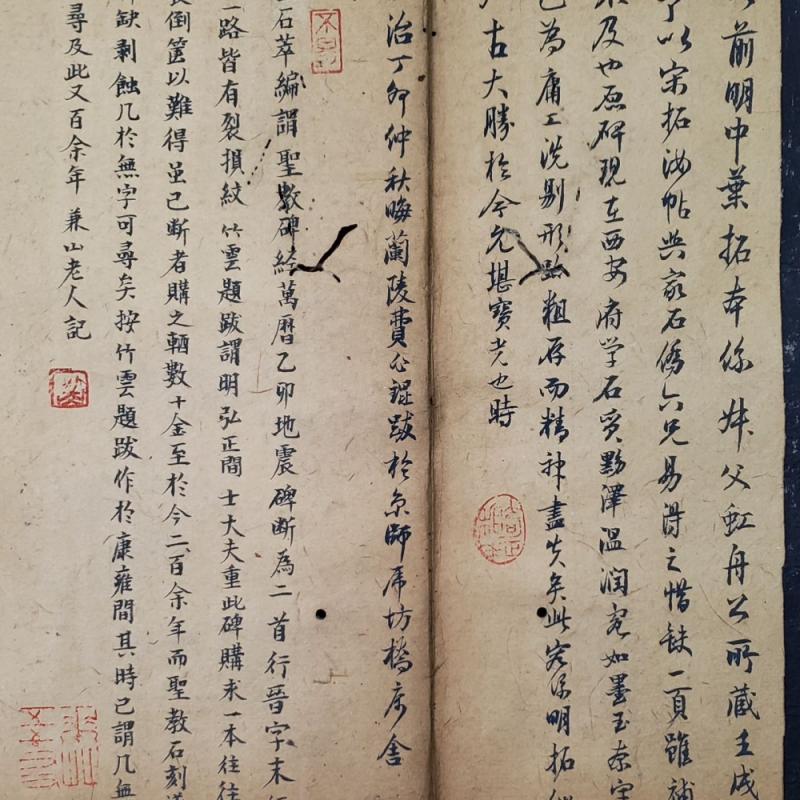 前明中葉拓本係 父虹舟公所藏壬戌
以宋拓 帖與家石僑六兄易得之惜缺一頁雖補
及也原碑現在西安府学石質黝澤溫潤宛如墨玉奈
已為庸工洗剔形 粗存而精神盡失矣此 係明拓
古大勝於今允堪寶 也時
治丁卯仲秋晦蘭陵費 跋於京師虎坊橋 舍
石萃編謂聖教碑經萬曆乙卯地震碑断為二首行晉字末
一路皆有裂損紋竹雲題跋謂明弘正間士大夫重此碑購求一本往往
倒篋以難得並已断者購之輒數十金至於今二百余年而聖教石刻
缺剥蝕几於無字可尋矣按竹雲題跋作於康雍間其時已謂几無
尋及此又百余年 兼山老人記